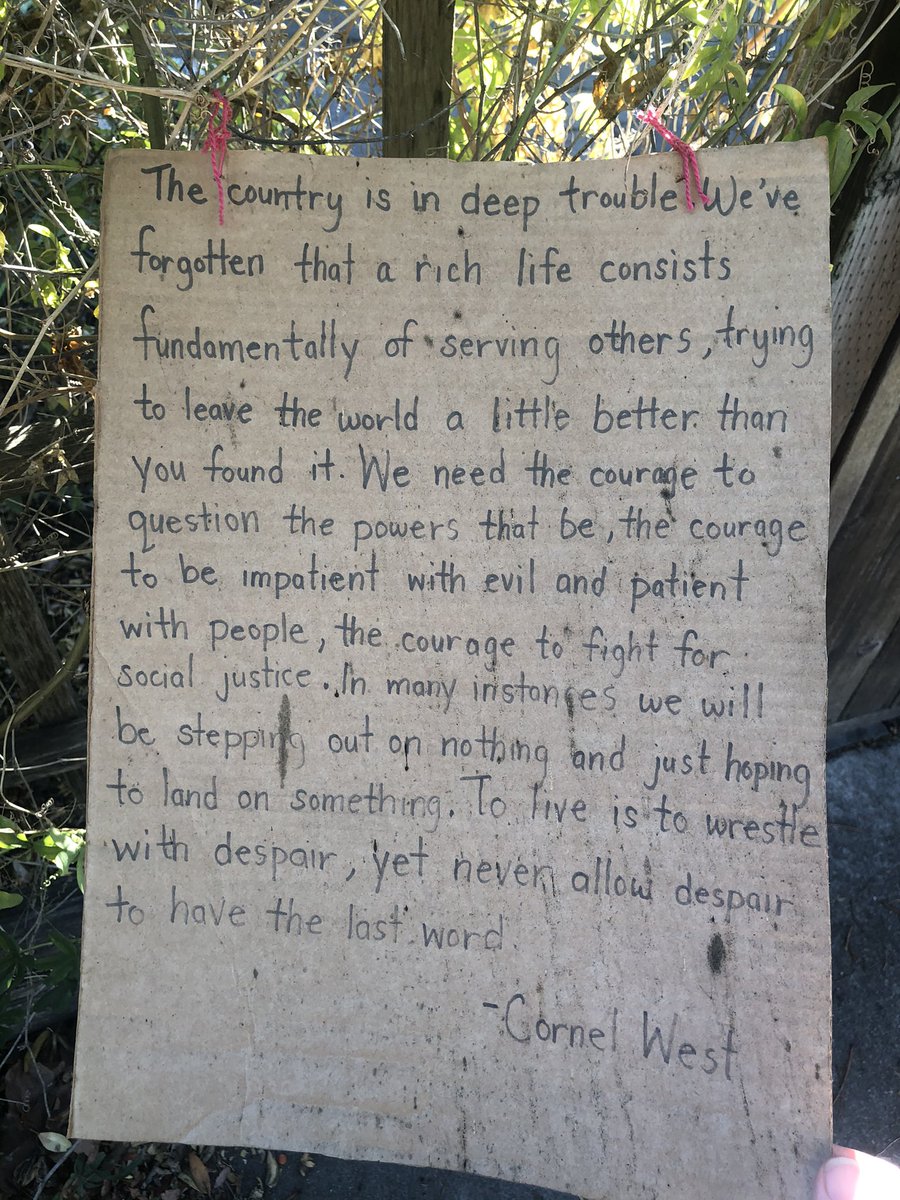 The country is in deep trouble We've
forgotten that a rich life consists
fundamentally of serving others, trying
to leave the world a little better than
you found it. We need the courage to
question the powers that be, the courage
to be impatient with evil and patient
with people, the courage to fight for
social justice. In many instances we will
be stepping out on nothing and just hoping
to land on something. To live is to wrestle
with despair, yet never allow despair
to have the last word.
-Cornel West